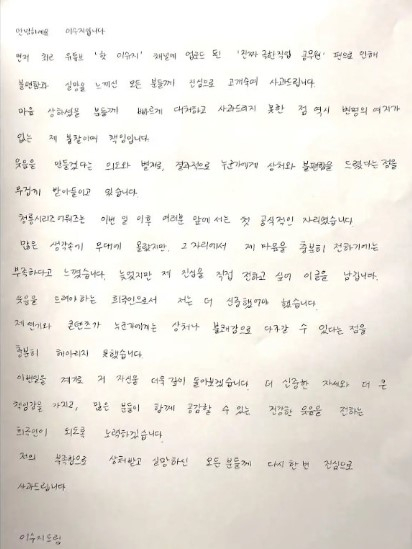 안녕하세요 이수지입니다
먼저 최근 유튜브 '핫 이슈지' 채널에 업로드 된 '진짜 극한직업 공무원' 편으로 인해
불편함과 실망을 느끼신 모든 분들께 진심으로 고개숙여 사과드립니다.
마음 상하셨을 분들께 빠르게 대처하고 사과드리지 못한 점 역시 변명의 여지가
없는 제 불찰이며 책임입니다
웃음을 만들겠다는 의도와 별개로, 결과적으로 누군가에게 상처와 불편함을 드렸다는 점을
무겁게 받아들이고 있습니다.
청룡시리즈어워즈는 이번 일 이후 여러분 앞에 서는 첫 공식적인 자리였습니다.
많은 생각속에 무대에 올랐지만, 그 자리에서 제 마음을 충분히 전하기에는
부족하다고 느꼈습니다. 늦었지만 제 진심을 직접 전하고 싶어 이글을 남깁니다.
웃음을 드려야하는 희극인으로서 저는 더 신중했어야 했습니다.
제 연기와 콘텐츠가 누군가에게는 상처나 불쾌감으로 다가갈 수 있다는 점을
충분히 헤아리지 못했습니다
이번일을 계기로 저 자신을 더욱 깊이 돌아보겠습니다. 더 신중한 자세와 더 큰
책임감을 가지고, 많은 분들이 함께 공감할 수 있는 건강한 웃음을 전하는
희극인이 되도록 노력하겠습니다.
저의 부족함으로 상처받고 실망하신 모든 분들께 다시 한 번 진심으로
사과드립니다
이수지드림